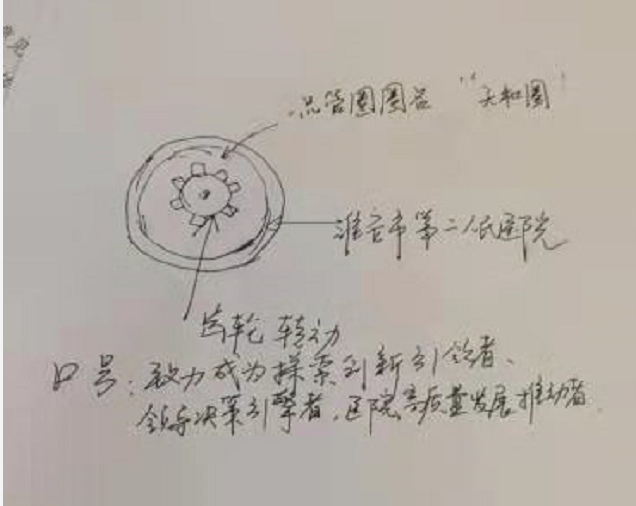 品管圈圈名 “天和圈”
淮安市第二人民医院
齿轮 转动
口号：致力成为探索创新引领者、
领导决策引擎者，医院高质量发展推动者。